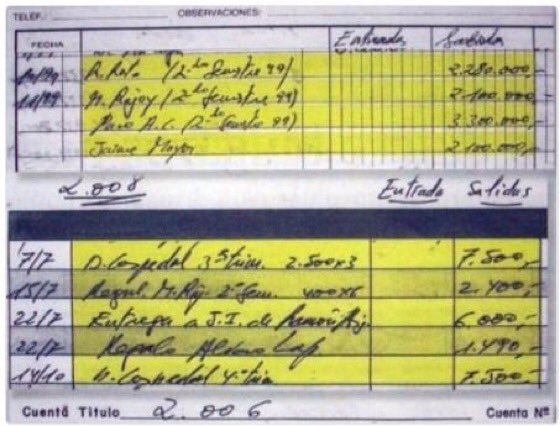 TELEF.: OBSERVACIONES:
FECHA Entradas Salidas
R. Rato (2º Semestre 99) 2.280.000,-
11/99 M. Rajoy (2º Semestre 99) 2.100.000,-
Paco A.C. (2º Semestre 99) 3.300.000,-
Jaime Mayor 2.100.000,-
2.008 Entrada Salidas
7/7 D. Cospedal 3º trim. 2.500x3 7.500,-
15/7 2º Sem. 400x6 2.400,-
22/7 Entrega a J.I. de 6.000,-
22/7 Regalo 1.490,-
14/10 D. Cospedal 4º trim 7.500,-
Cuenta Titulo 2.006 Cuenta Nº